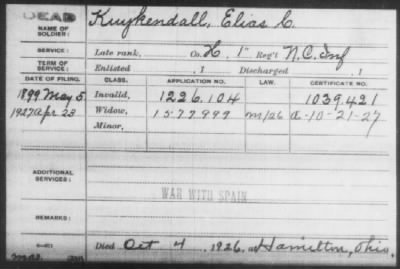 DEAD
NAME OF SOLDIER: Kuykendall, Elias C.
SERVICE: Late rank, Co. H, 1" Reg't N.C. Inf
TERM OF SERVICE: Enlisted , 1 Discharged , 1
DATE OF FILING. CLASS. APPLICATION NO. LAW. CERTIFICATE NO.
1899 May 5 Invalid, 1226.104 1039.421
1927 Apr 23 Widow, 1577.999 M/26 A-10-21-27
Minor,
ADDITIONAL SERVICES:
WAR WITH SPAIN
REMARKS:
Died Oct 4, 1926, at Hamilton, Ohio.